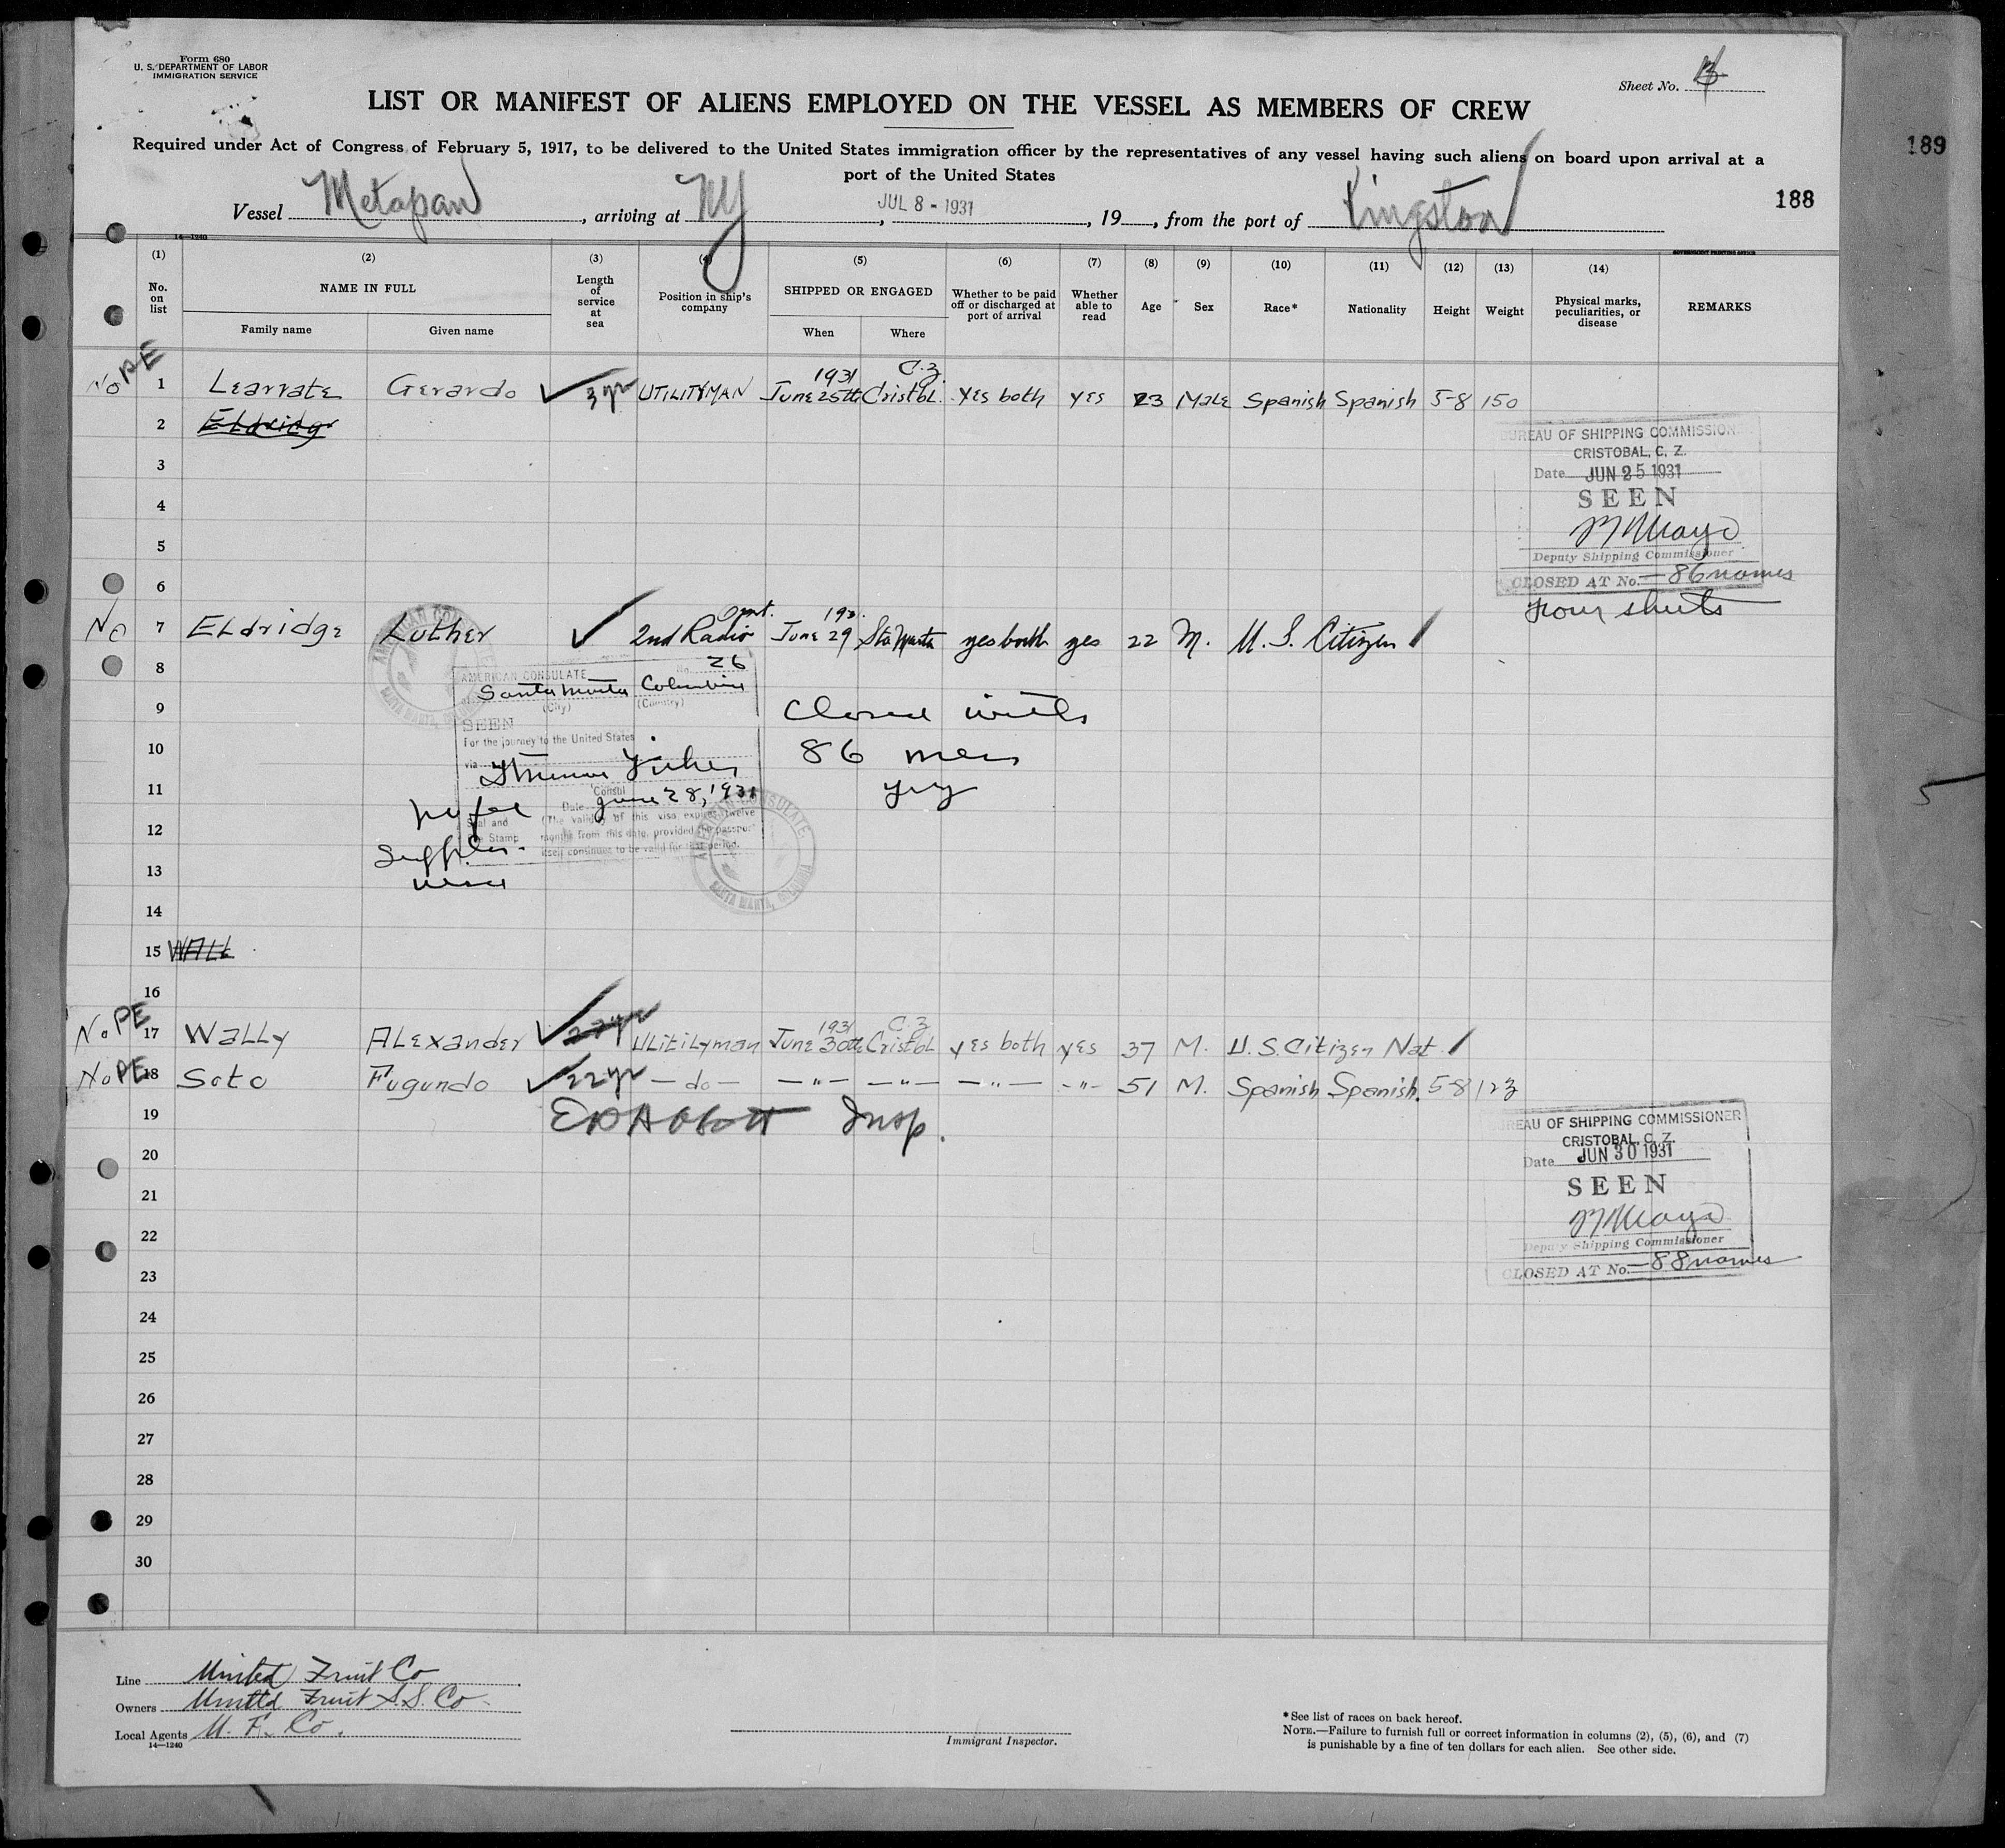 Form 680
U. S. DEPARTMENT OF LABOR
IMMIGRATION SERVICE
Sheet No.
LIST OR MANIFEST OF ALIENS EMPLOYED ON THE VESSEL AS MEMBERS OF CREW
189
Required under Act of Congress of February 5, 1917, to be delivered to the United States immigration officer by the representatives of any vessel having such aliens on board upon arrival at a
port of the United States
188
Vessel Metapan, arriving at NY, JUL 8 - 1931, 19, from the port of Kingston
14—1240
GOVERNMENT PRINTING OFFICE
(1) (2) (3) (4) (5) (6) (7) (8) (9) (10) (11) (12) (13) (14)
No. on list
NAME IN FULL
Family name Given name
Length of service at sea
Position in ship's company
SHIPPED OR ENGAGED
When Where
Whether to be paid off or discharged at port of arrival
Whether able to read
Age
Sex
Race*
Nationality
Height
Weight
Physical marks, peculiarities, or disease
REMARKS
No PE 1 Learrate Gerardo 3 yr UTILITYMAN 1931 June 25th C.Z. Cristbl. Yes both yes 23 Male Spanish Spanish 5-8 150
2 Eldridge
3
4
5
6
BUREAU OF SHIPPING COMMISSION
CRISTOBAL, C. Z.
Date JUN 25 1931
SEEN
Deputy Shipping Commissioner
CLOSED AT No. — 86 names
four sheets
No 7 Eldridge Luther 2nd Radio Opt. 1931 June 29 Sta Marta yes both yes 22 M. U. S. Citizen
8
9
10
11
12
13
14
AMERICAN CONSULATE
SANTA MARTA, COLOMBIA
AMERICAN CONSULATE No. 26
Santa Marta Colombia
(City) (Country)
SEEN
For the journey to the United States
via
Consul
Date June 28, 1931
Seal and
Stamp
(The validity of this visa expires twelve
months from this date, provided the passport
itself continues to be valid for that period.
No fee
Closed with
86 men
AMERICAN CONSULATE
SANTA MARTA, COLOMBIA
15 WALL
16
No PE 17 Wally Alexander 22 yr Utilityman 1931 June 30th C.Z. Cristbl yes both yes 37 M. U. S. Citizen Nat.
No PE 18 Soto Fugundo 22 yr — do — — " — — " — — " — - " - 51 M. Spanish Spanish. 5-8 123
Insp.
19
20
21
22
23
24
25
26
27
28
29
30
BUREAU OF SHIPPING COMMISSIONER
CRISTOBAL, C. Z.
Date JUN 30 1931
SEEN
Deputy Shipping Commissioner
CLOSED AT No. — 88 names
Line United Fruit Co
Owners United Fruit S.S. Co
Local Agents U. F. Co.
14—1240
Immigrant Inspector.
*See list of races on back hereof.
NOTE.—Failure to furnish full or correct information in columns (2), (5), (6), and (7)
is punishable by a fine of ten dollars for each alien. See other side.